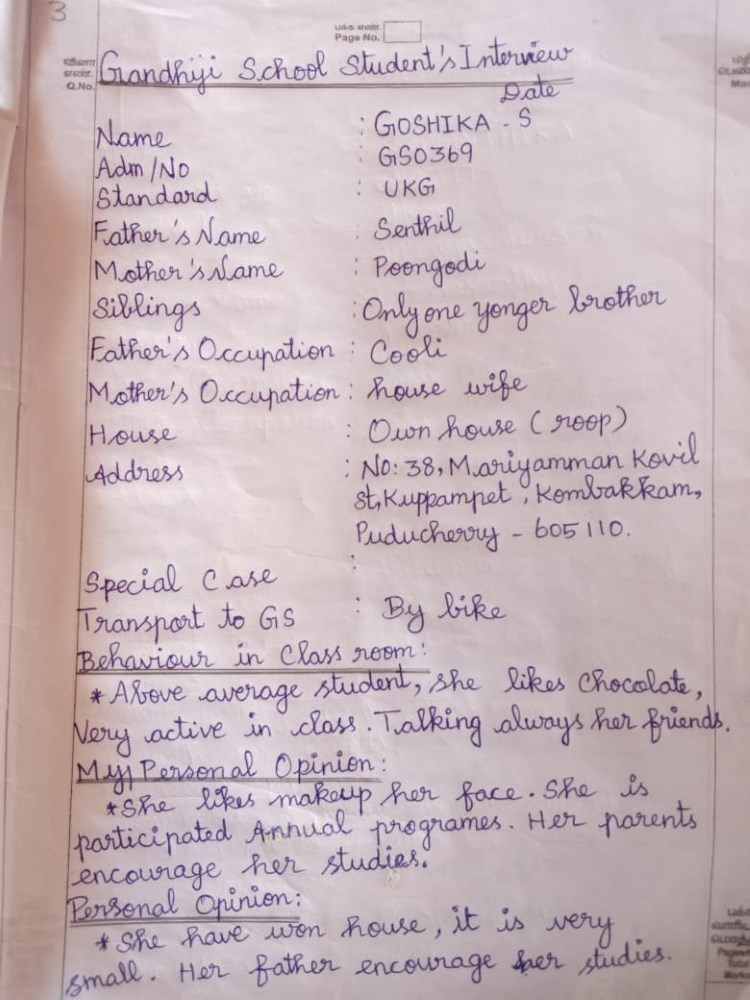 3
பக்க எண்.
Page No.
வினா
எண்.
Q.No.
Gandhiji School Student's Interview
Date
Name : GOSHIKA - S
Adm/No : GS0369
Standard : UKG
Father's Name : Senthil
Mother's Name : Poongodi
Siblings : Only one yonger brother
Father's Occupation : Cooli
Mother's Occupation : house wife
House : Own house (roop)
Address : No: 38, Mariyamman Kovil
st, Kuppampet, Kombakkam,
Puducherry - 605 110.
Special Case :
Transport to GS : By bike
Behaviour in Class room:
* Above average student, she likes Chocolate,
Very active in class. Talking always her friends.
My Personal Opinion:
* She likes makeup her face. She is
participated Annual programes. Her parents
encourage her studies.
Personal Opinion:
* She have won house, it is very
small. Her father encourage her studies.